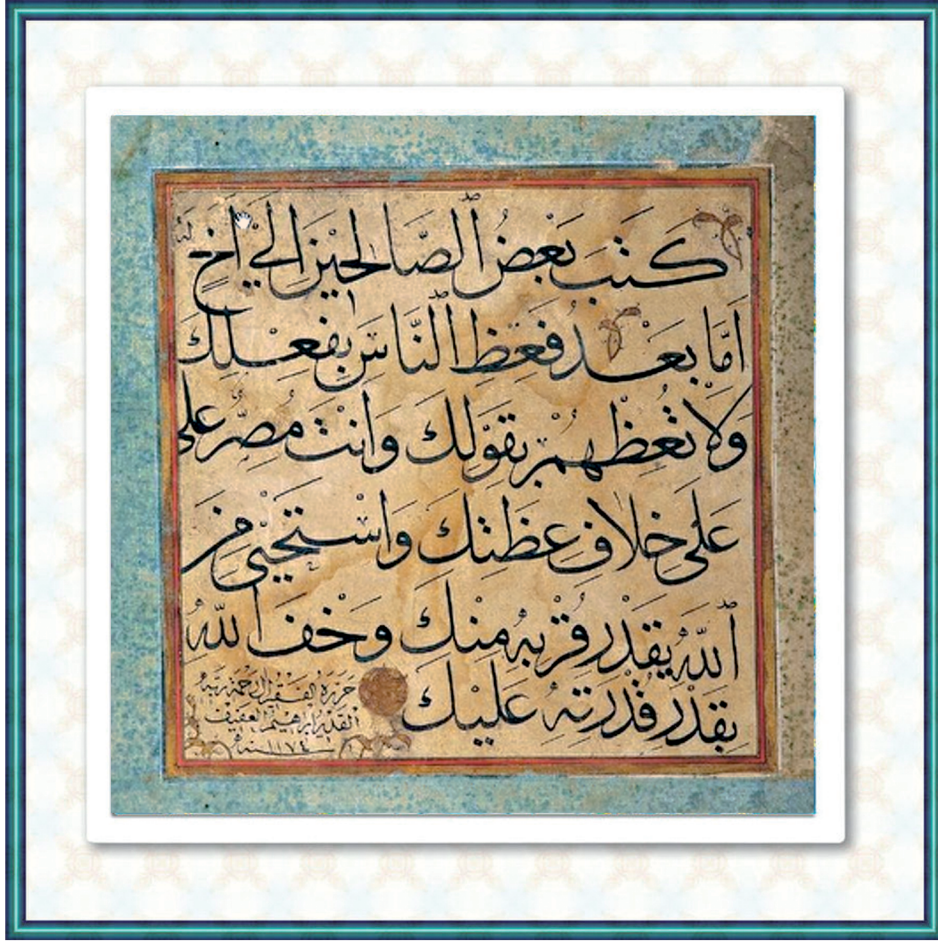 كتب بعض الصالحين الى اخ له
اما بعد فعظ الناس بفعلك
ولا تعظهم بقولك وانت مصر على
على خلاف عظتك واستحيى من
الله بقدر قربه منك وخف الله
بقدر قدرته عليك
حرره الفقير الى رحمة ربه
القدير ابراهيم العفيف
سنه ١١٧٤